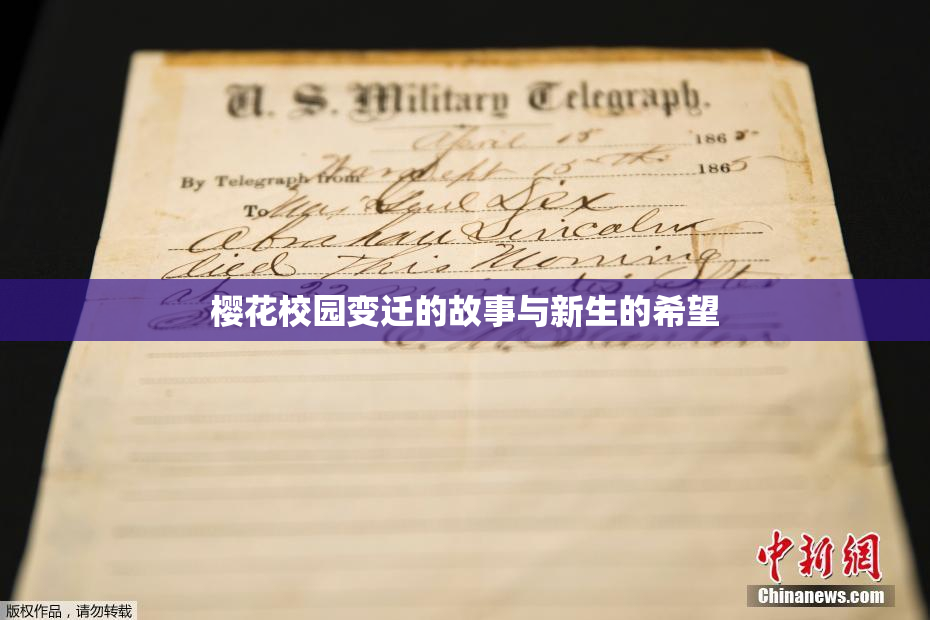 U. S. Military Telegraph.
April 15 1865
By Telegraph from War Dept 15th 1865
To Maj Genl Dix
Abraham Lincoln
died This Morning
at 22 minutes after
樱花校园变迁的故事与新生的希望
E. M. Stanton
中新網
Chinanews.com
版权作品，请勿转载